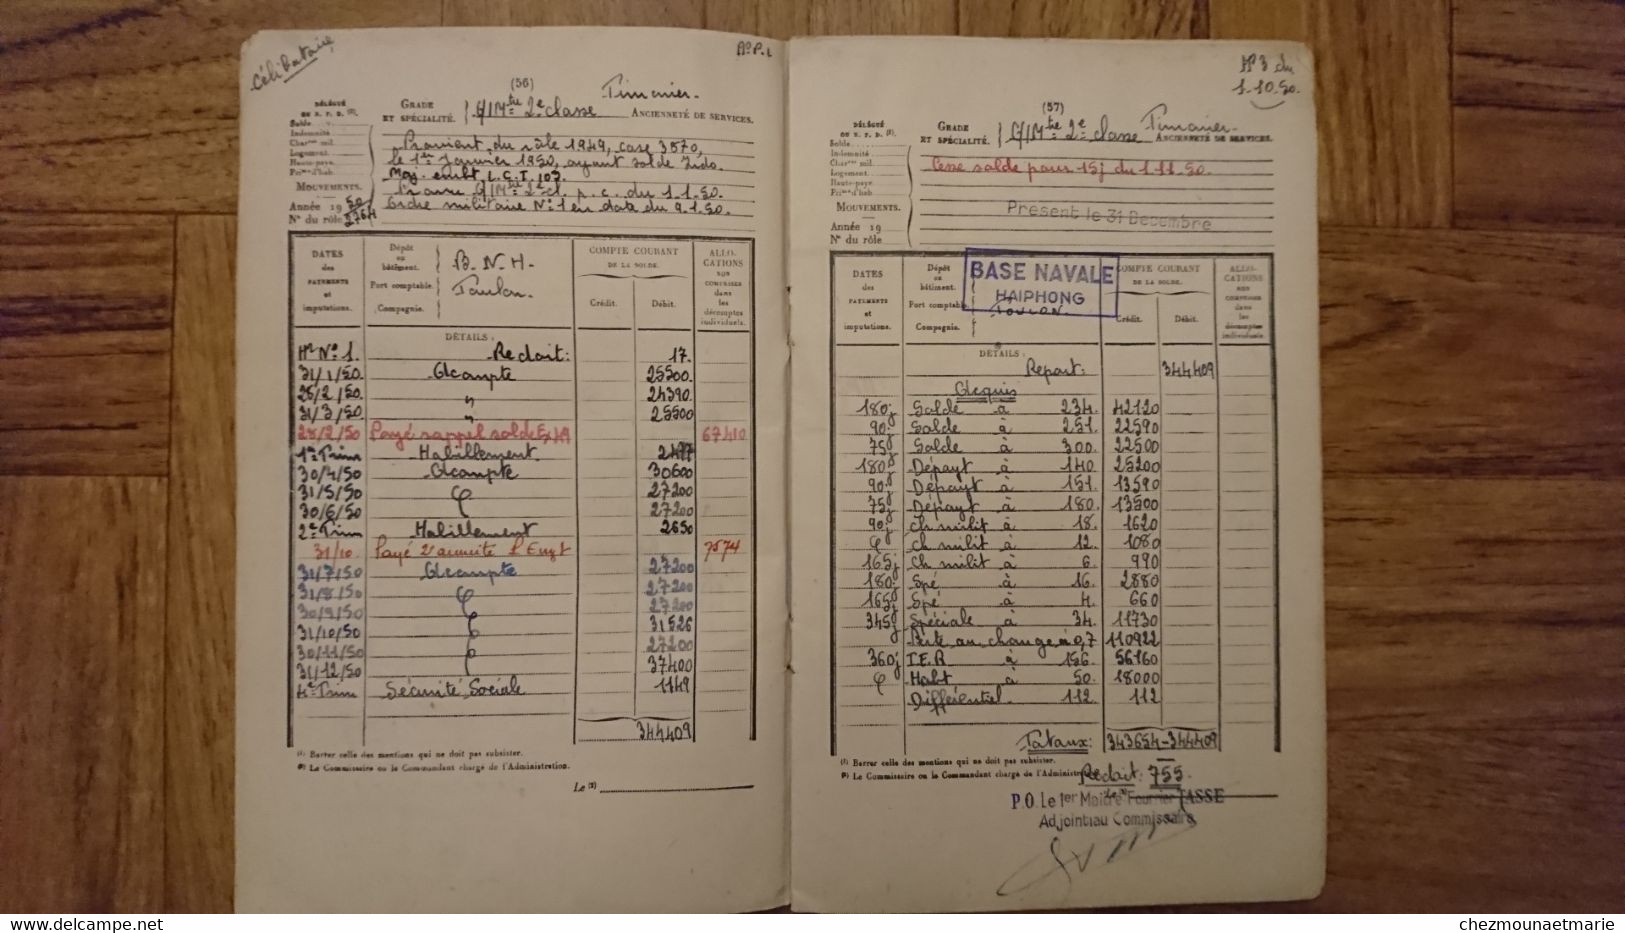 Célibataire
(56)
DÉLÉGUÉ
Solde
Indemnité
Logement
Haute-paye
MOUVEMENTS.
Année 1950
N° du rôle
GRADE
ET SPÉCIALITÉ.
2e classe
ANCIENNETÉ DE SERVICES.
Provient du rôle 1949, case 3570,
le 1er Janvier 1950, ayant solde Indo.
Maj. embt L.C.T. 107.
p.c. du 1.1.50.
Ordre militaire N°1 en date du 9.1.50.
DATES
des
PAYEMENTS
et
imputations.
Dépôt
ou
bâtiment.
Port comptable.
Compagnie.
B.N.H.
Toulon.
COMPTE COURANT
DE LA SOLDE.
Crédit.
Débit.
ALLO-
CATIONS
NON
COMPRISES
dans
les
décomptes
individuels.
DÉTAILS :
N°1. Redoit: 17.
31/1/50. Acompte 25500.
25/2/50. " 24390.
31/3/50. " 25500
28/2/50 Payé rappel solde 67410
1er Trim Habillement 2477
30/4/50 Acompte 30600
31/5/50 27200
30/6/50 27200
2e Trim Habillement 2650
31/10. Payé 2e annuité 7574
31/7/50 Acompte 27200
31/8/50 27200
30/9/50 27200
31/10/50 31526
30/11/50 27200
31/12/50 37400
4e Trim Sécurité Sociale 1149
344409
(1) Barrer celle des mentions qui ne doit pas subsister.
(2) Le Commissaire ou le Commandant chargé de l'Administration.
Le (2)
N° 3 du
1.10.50.
(57)
DÉLÉGUÉ
Solde
Indemnité
Logement
Haute-paye
MOUVEMENTS.
Année 19
N° du rôle
GRADE
ET SPÉCIALITÉ.
2e classe Timonier
ANCIENNETÉ DE SERVICES.
Cesse solde pour 15j du 1.11.50.
Present le 31 Decembre
DATES
des
PAYEMENTS
et
imputations.
Dépôt
ou
bâtiment.
Port comptable.
Compagnie.
BASE NAVALE
HAIPHONG
TOULON.
COMPTE COURANT
DE LA SOLDE.
Crédit.
Débit.
ALLO-
CATIONS
NON
COMPRISES
dans
les
décomptes
individuels.
DÉTAILS :
Report: 344409
Acquis
180j Solde à 234. 42120
90j Solde à 251. 22590
75j Solde à 300. 22500
180j Dépayt à 140. 25200
90j Dépayt à 151. 13590
75j Dépayt à 180. 13500
90j ch milit à 18. 1620
ch milit à 12. 1080
165j ch milit à 6. 990
180j Spé à 16. 2880
165j Spé à 4. 660
345j Spéciale à 34. 11730
Perte au change à 0,7 110922
360j I.E.R à 156. 56160
Habt à 50. 18000
Différentiel 112. 112
Totaux: 343654-344409
(1) Barrer celle des mentions qui ne doit pas subsister.
(2) Le Commissaire ou le Commandant chargé de l'Administr
Redoit: 755.
P.O. Le 1er Maitre Fourrier TASSE
Adjoint au Commissaire
chezmounaetmarie